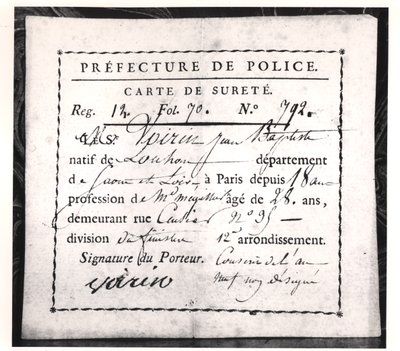 PRÉFECTURE DE POLICE.
CARTE DE SURETÉ.
Reg. 12. Fol. 70. N.º 792.
Yvrin Jean Baptiste
natif de Louhans département
de Saone et Loire à Paris depuis 18 ans
profession de M.d âgé de 28. ans,
demeurant rue n.º 95
division du finistere 12.e arrondissement.
Signature du Porteur. Conscrit de l'an
yvrin neuf non désigné